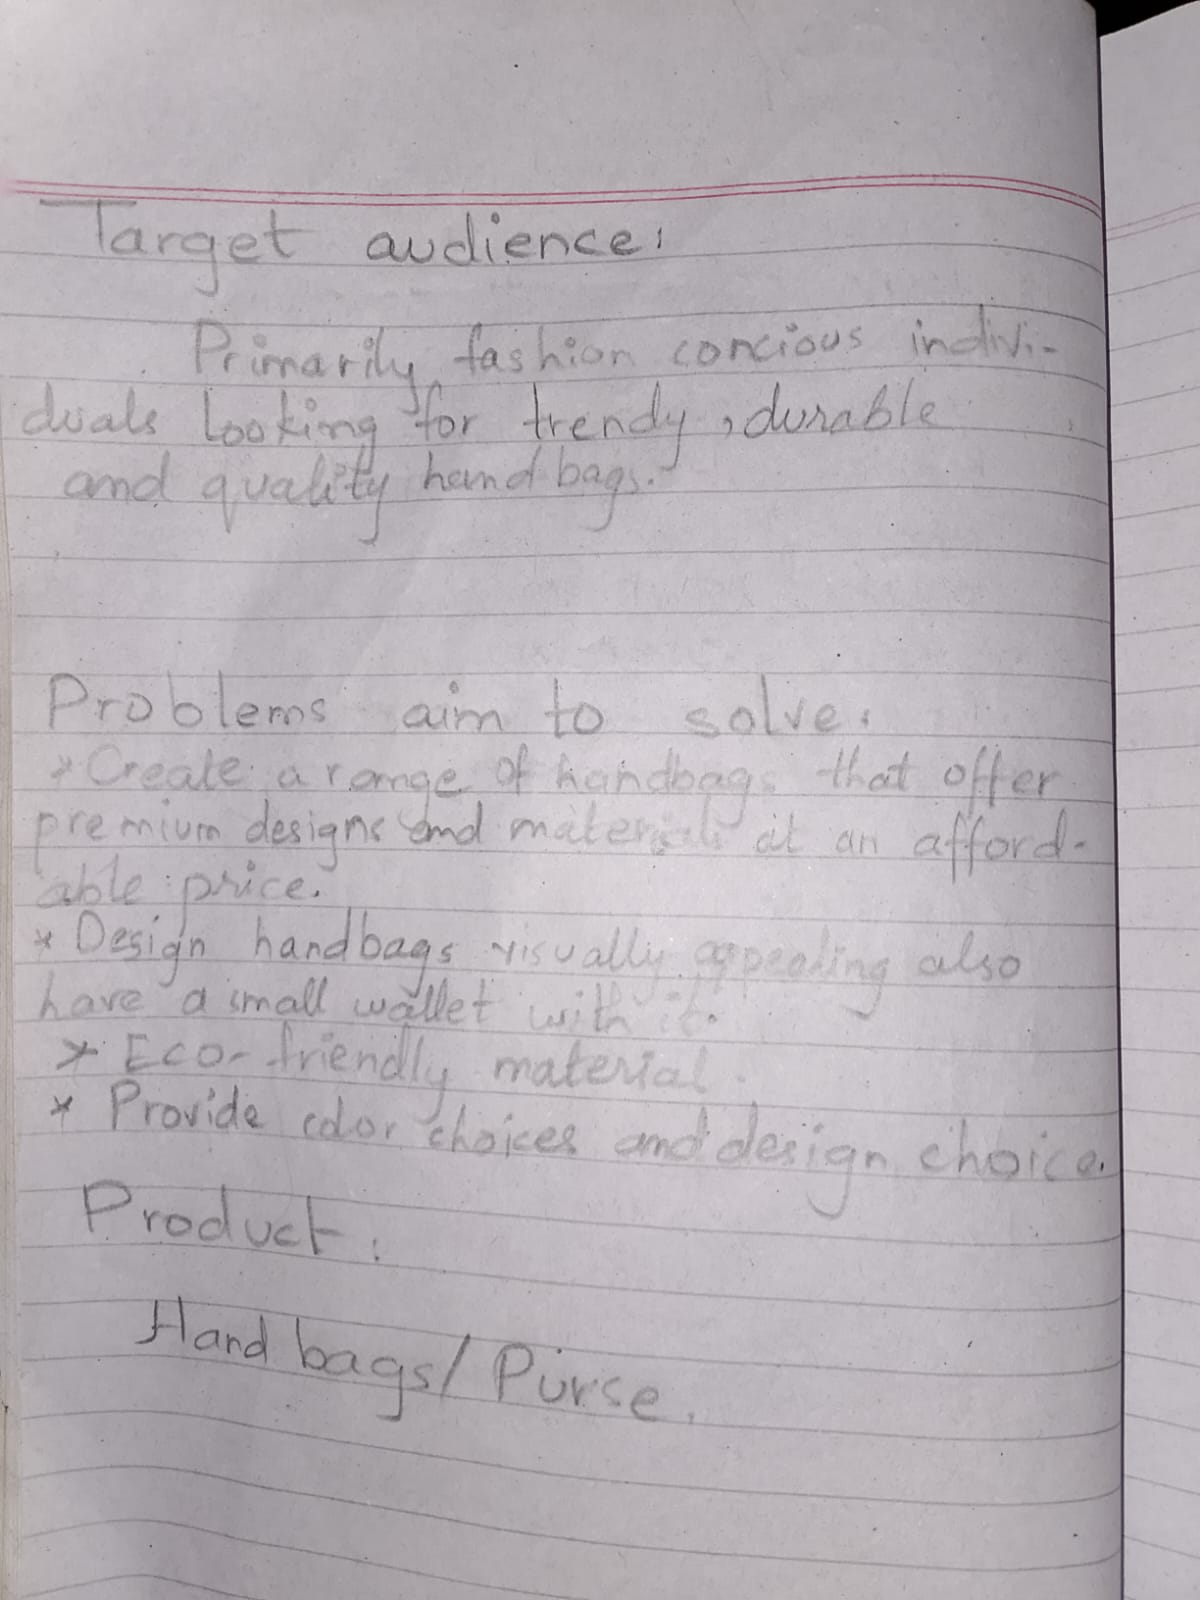 Target audience:
Primarily fashion concious indivi-
duals looking for trendy, durable
and quality handbags.
Problems aim to solve:
* Create a range of handbags that offer
premium designs and materials at an afford-
able price.
* Design handbags visually appealing also
have a small wallet with it.
* Eco-friendly material.
* Provide color choices and design choice.
Product:
Hand bags/Purse.